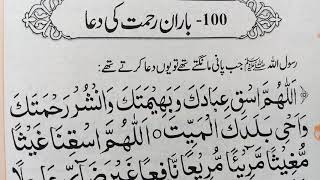 100- باران رحمت کی دعا
رسول اللہ ﷺ جب پانی مانگتے تھے تو یوں دعا کرتے تھے:
اَللّٰهُمَّ اسْقِ عِبَادَكَ وَبَهِيْمَتَكَ وَانْشُرْ رَحْمَتَكَ
وَاَحْيِ بَلَدَكَ الْمَيِّتَ ۝ اَللّٰهُمَّ اسْقِنَا غَيْثًا
مُّغِيْثًا مَّرِيْئًا مُّرِيْعًا نَّافِعًا غَيْرَ ضَآرٍّ عَاجِلًا